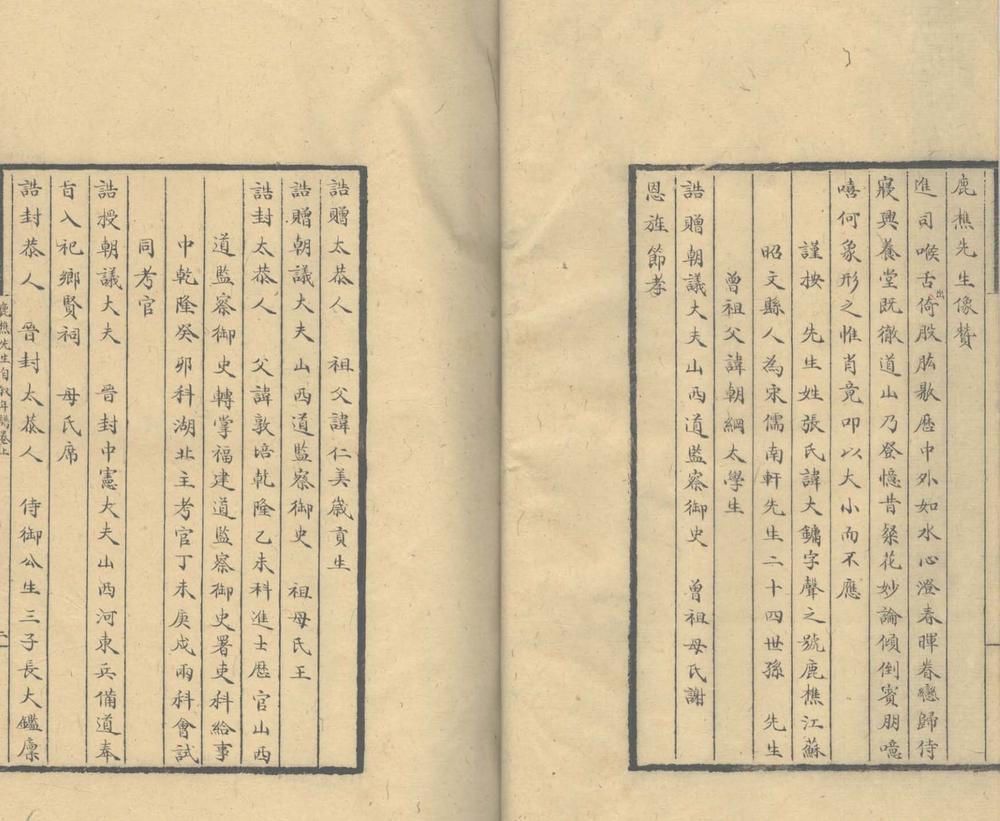 鹿樵先生像贊
進司喉舌出倚股肱敭歷中外如水心澄春暉眷戀歸侍
寢興養堂既徹道山乃登憶昔粲花妙論傾倒賓朋噫
嘻何象形之惟肖竟叩以大小而不應
謹按 先生姓張氏諱大鏞字聲之號鹿樵江蘇
昭文縣人為宋儒南軒先生二十四世孫 先生
曾祖父諱朝綱太學生
誥贈朝議大夫山西道監察御史 曾祖母氏謝
恩旌節孝
誥贈太恭人 祖父諱仁美歲貢生
誥贈朝議大夫山西道監察御史 祖母氏王
誥封太恭人 父諱敦培乾隆乙未科進士歷官山西
道監察御史轉掌福建道監察御史署吏科給事
中乾隆癸卯科湖北主考官丁未庚戌兩科會試
同考官
誥授朝議大夫 晉封中憲大夫山西河東兵備道奉
旨入祀鄉賢祠 母氏席
誥封恭人 晉封太恭人 侍御公生三子長大鑑廩
鹿樵先生自叙年譜卷上 二